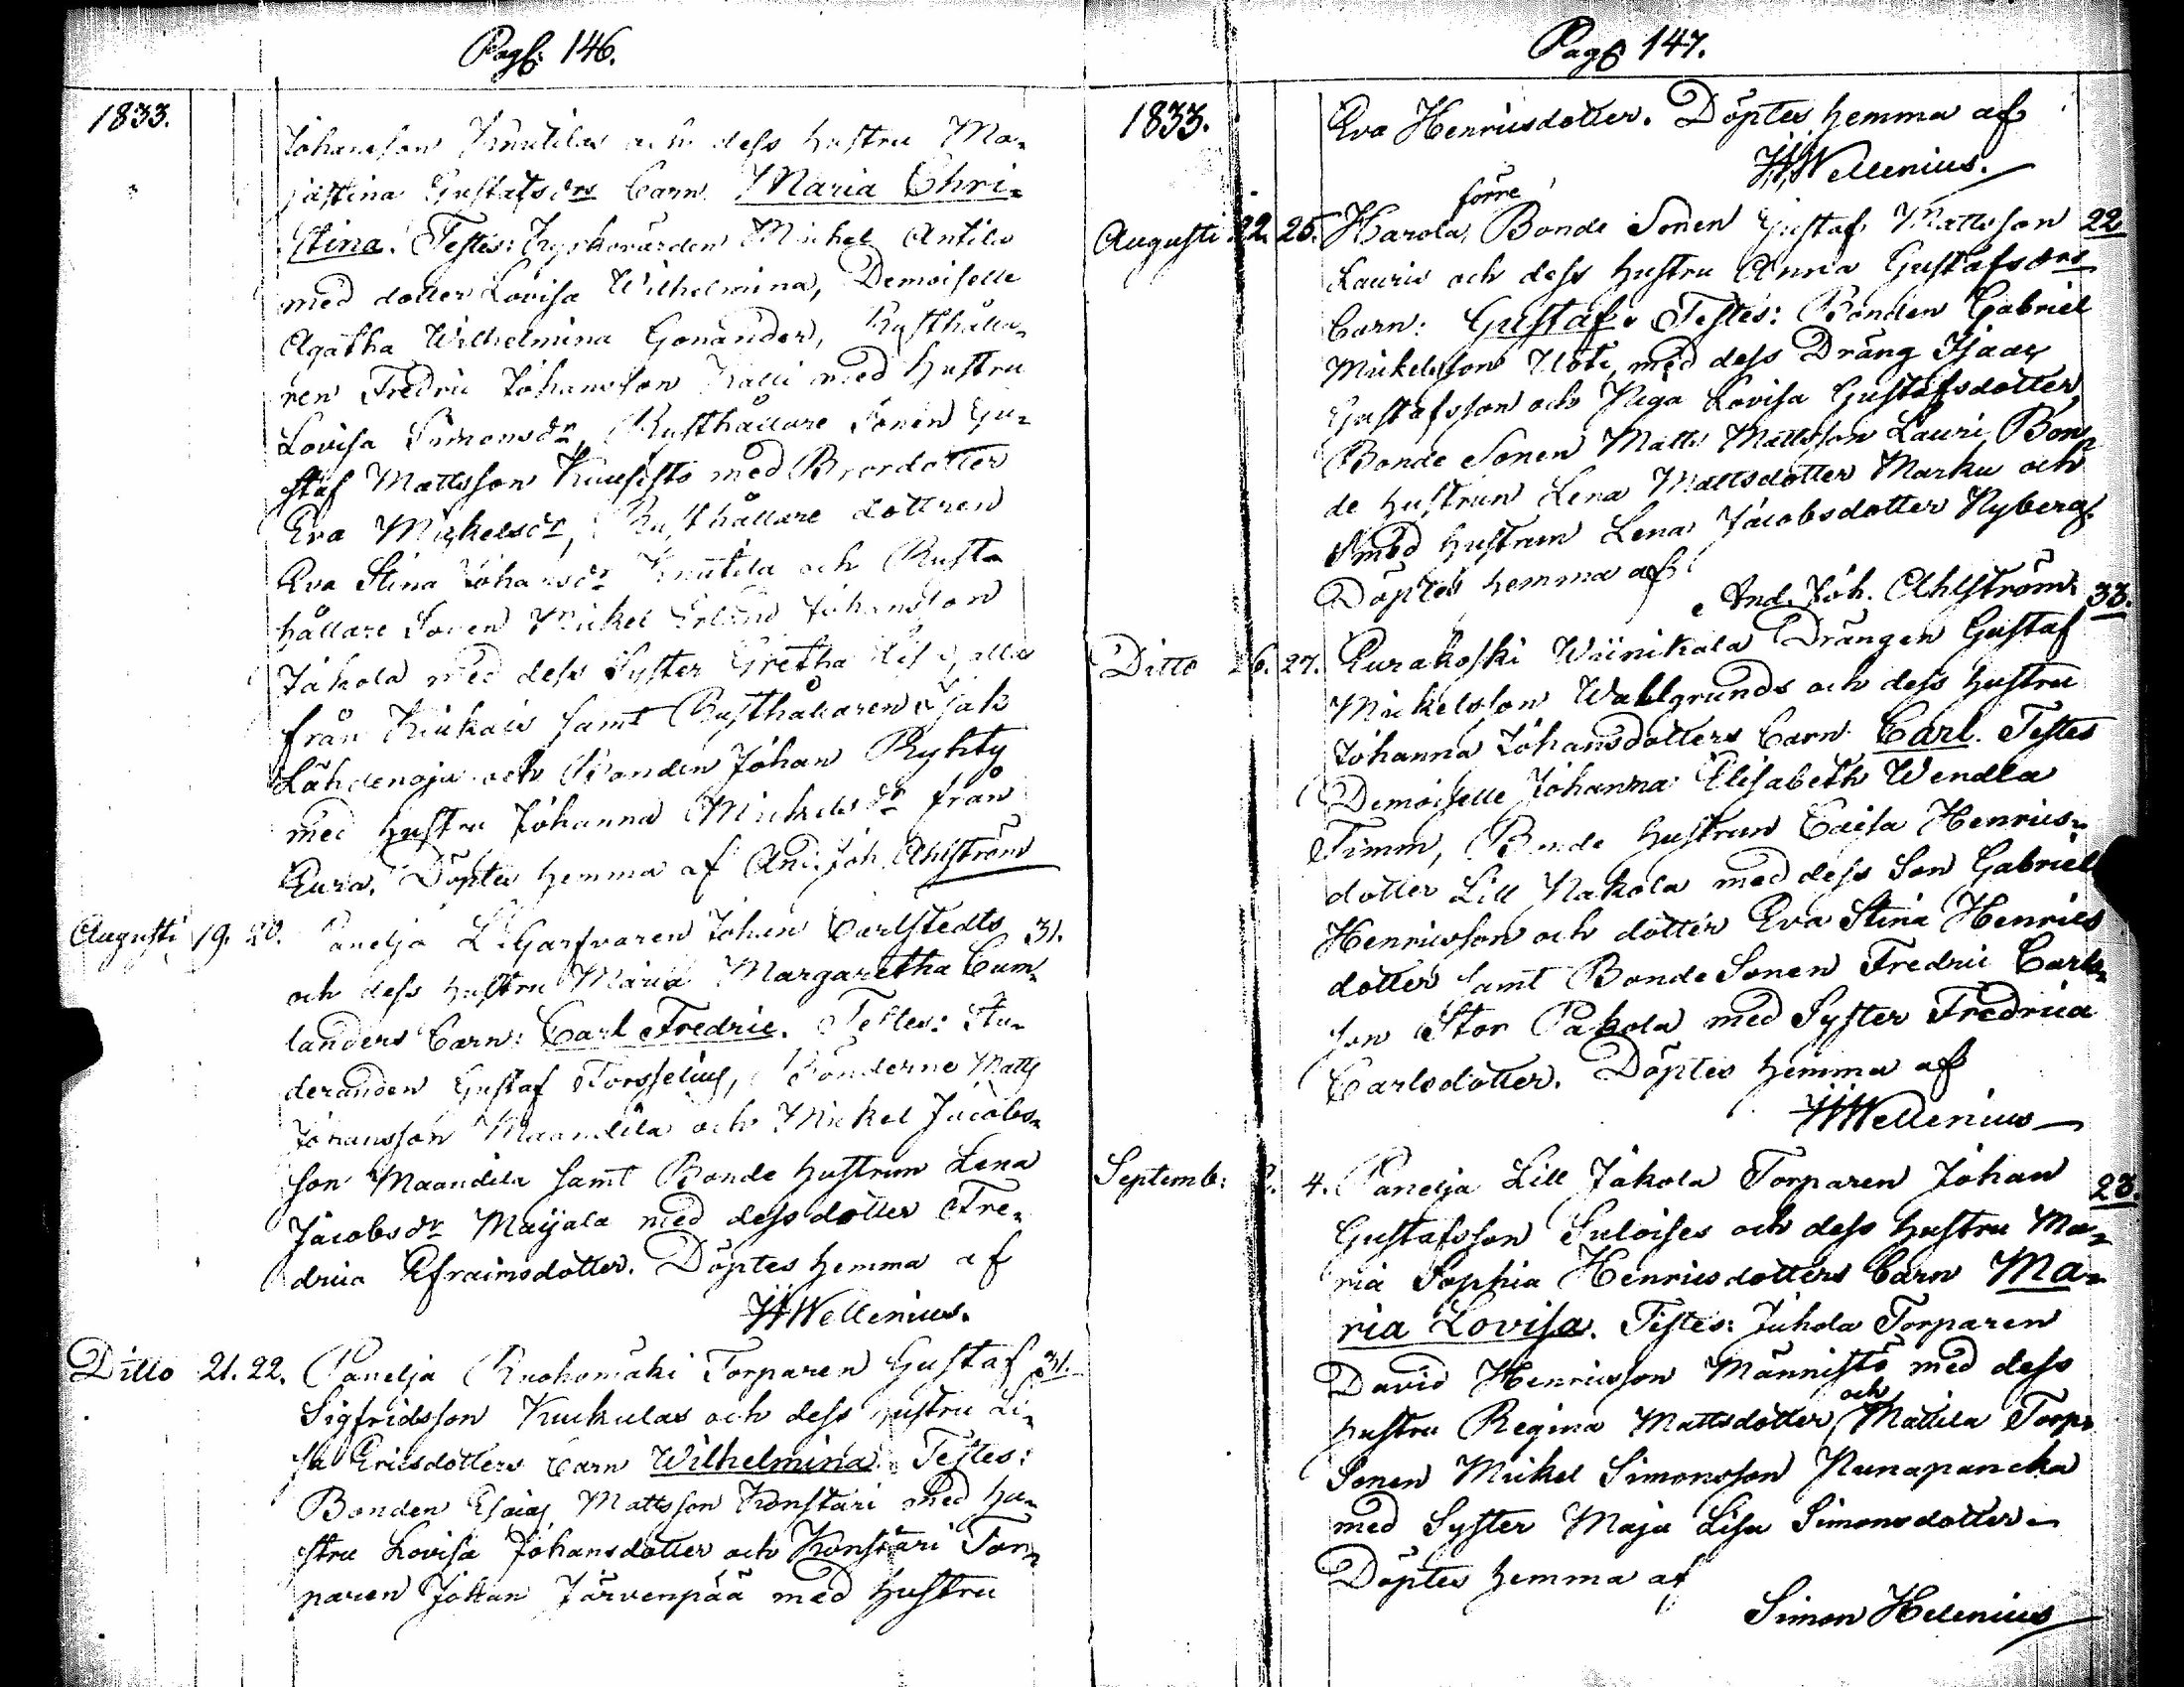 Pag: 146.
1833.
Johansson Knuutilas och dess hustru Ma-
jastina Gustafsdrs barn Maria Chri-
stina. Testes: Kyrkovärden Michel Anttila
med dotter Lovisa Wilhelmina, Demoiselle
Agatha Wilhelmina Gonander, Rusthålla-
ren Fredric Johansson Kalli med hustru
Lovisa Simonsdr, Rusthållare Sonen Gu-
staf Mattsson Kuusisto med Brordotter
Eva Michelsdr, Rusthållare dottren
Eva Stina Johansdr Knuutila och Rust-
hållare Sonen Mickel Erland Johansson
Jakola med dess Syster Gretha Lisa, alla
från Kiukais samt Rusthållaren Isak
Lähdenoja och Bonden Johan Ryhty
med hustru Johanna Mickelsdr från
Eura. Döptes hemma af And. Joh. Ahlström
Augusti 19. 20. Panelja L. Garfvaren Johan Carlstedts 31.
och dess hustru Maria Margaretha Cum-
landers barn: Carl Fredric. Testes: Stu-
deranden Gustaf Forsselius, Bönderne Matts
Johansson Maandila och Mickel Jacobs-
son Maandila samt Bonde hustrun Lena
Jacobsdr Maijala med dess dotter Fre-
drica Efraimsdotter. Döptes hemma af
Wellenius.
Ditto 21. 22. Panelja Ruohomäki Torparen Gustaf 31.
Sigfridsson Kuukulas och dess hustru Li-
sa Ericsdotters barn Wilhelmina. Testes:
Bonden Esaias Mattsson Konstari med hu-
stru Lovisa Johansdotter och Konstari Tor-
paren Johan Järvenpää med hustru
Pag: 147.
1833.
Eva Henricsdotter. Döptes hemma af
Wellenius.
förre
Augusti 22. 25. Harola, Bonde Sonen Gustaf Mattsson 22
Lauris och dess hustru Anna Gustafsdrs
barn: Gustaf. Testes: Bonden Gabriel
Mickelsson Uoti, med dess Dräng Isaac
Gustafsson och Piga Lovisa Gustafsdotter,
Bonde Sonen Matts Mattsson Lauri, Bon-
de hustrun Lena Mattsdotter Marku och
Smed hustrun Lena Jacobsdotter Nyberg.
Döptes hemma af
And. Joh. Ahlström. 33.
Ditto 26. 27. Eurakoski Wiinikala Drängen Gustaf
Mickelsson Wahlgrunds och dess hustru
Johanna Johansdotters barn Carl. Testes
Demoiselle Johanna Elisabeth Wendla
Timm, Bonde hustrun Caisa Henrics-
dotter Lill Pakola med dess Son Gabriel
Henricsson och dotter Eva Stina Henrics
dotter samt Bonde Sonen Fredric Carls-
son Stor Pakola med Syster Fredrica
Carlsdotter. Döptes hemma af
Wellenius
Septemb: 4. Panelja Lill Jakola Torparen Johan 23.
Gustafsson Suloises och dess hustru Ma-
ria Sophia Henricsdotters barn Ma-
ria Lovisa. Testes: Jakola Torparen
David Henricsson Männistö med dess
och
hustru Regina Mattsdotter, Mattila Torp-
Sonen Mickel Simonsson Punapancka
med Syster Maja Lisa Simonsdotter
Döptes hemma af
Simon Helenius